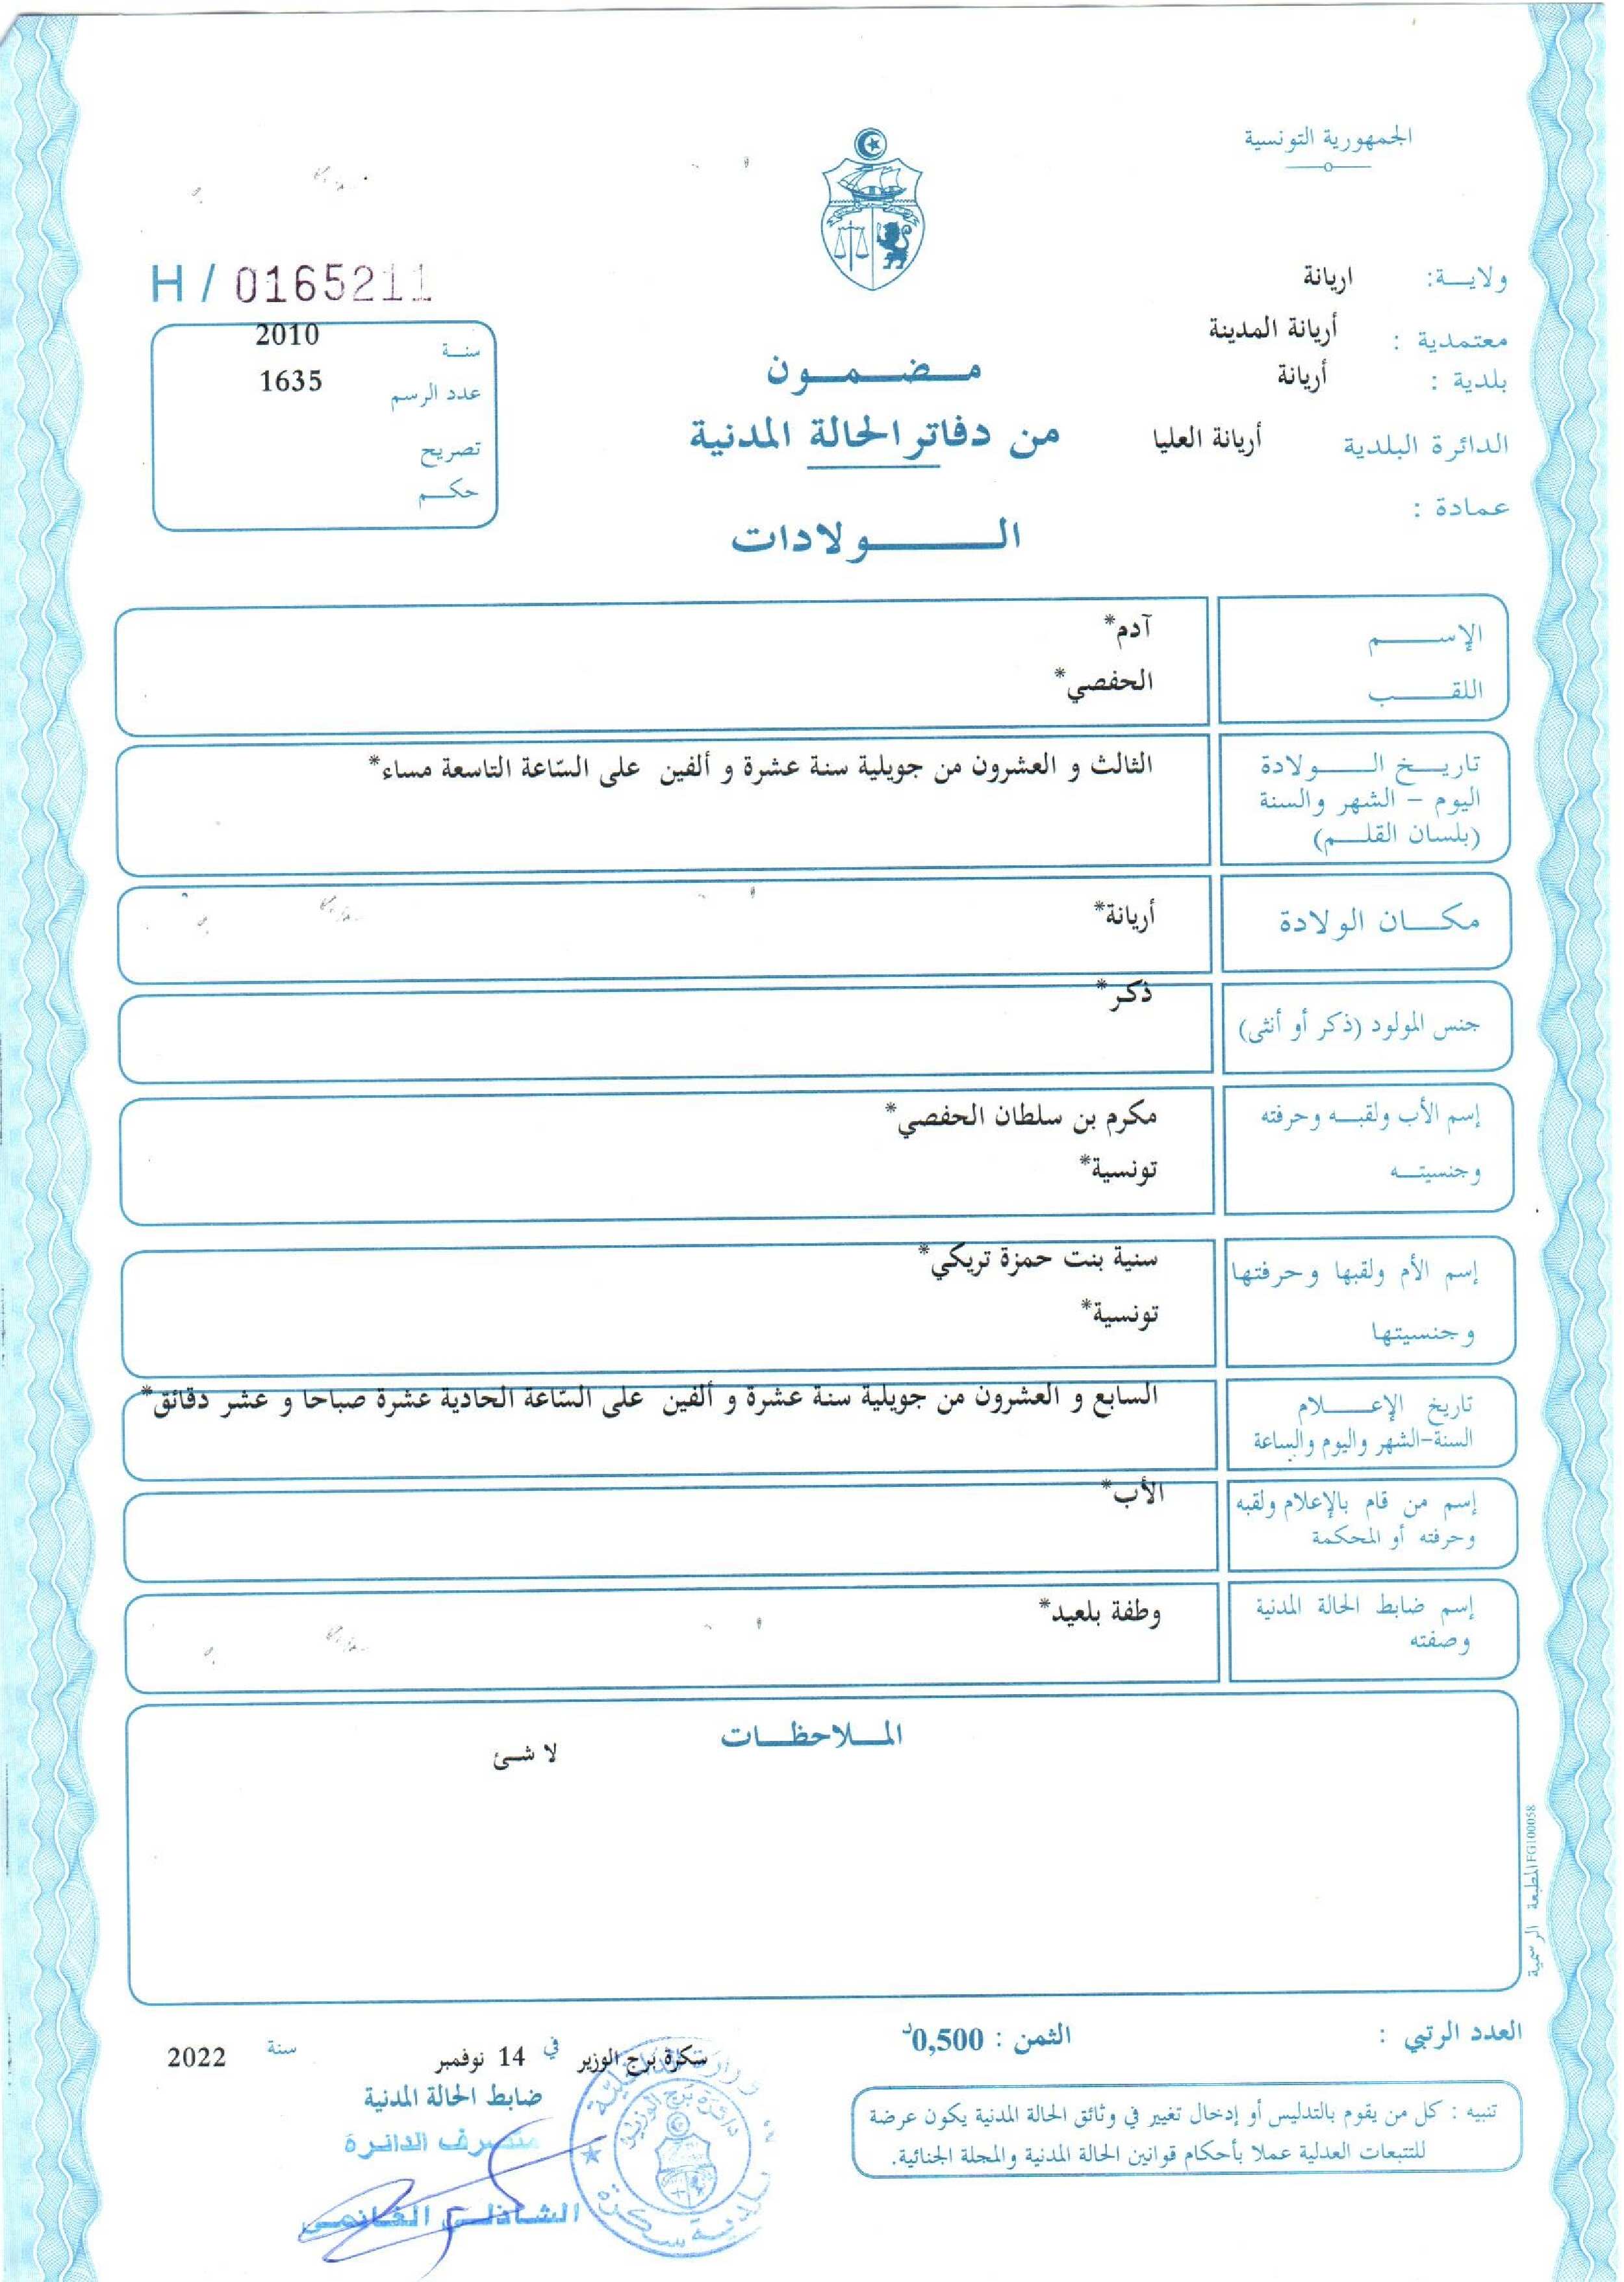 الجمهورية التونسية
ولاية: اريانة
معتمدية : أريانة المدينة
بلدية : أريانة
الدائرة البلدية أريانة العليا
عمادة :
H / 0165211
سنة 2010
عدد الرسم 1635
تصريح
حكم
مضمون
من دفاتر الحالة المدنية
الولادات
الإسم آدم*
اللقب الحفصي*
تاريخ الولادة
اليوم – الشهر والسنة
(بلسان القلم)
الثالث و العشرون من جويلية سنة عشرة و ألفين على السّاعة التاسعة مساء*
مكان الولادة أريانة*
جنس المولود (ذكر أو أنثى) ذكر*
إسم الأب ولقبه وحرفته
وجنسيته
مكرم بن سلطان الحفصي*
تونسية*
إسم الأم ولقبها وحرفتها
وجنسيتها
سنية بنت حمزة تريكي*
تونسية*
تاريخ الإعلام
السنة-الشهر واليوم والساعة
السابع و العشرون من جويلية سنة عشرة و ألفين على السّاعة الحادية عشرة صباحا و عشر دقائق*
إسم من قام بالإعلام ولقبه
وحرفته أو المحكمة
الأب*
إسم ضابط الحالة المدنية
وصفته
وطفة بلعيد*
الملاحظات
لا شئ
المطبعة الرسمية FG100058
العدد الرتبي :
الثمن : 0,500د
سكرة برج الوزير في 14 نوفمبر سنة 2022
ضابط الحالة المدنية
متصرف الدائرة
الشاذلي الغانمي
وزارة الداخلية
دائرة برج الوزير
بلدية سكرة
تنبيه : كل من يقوم بالتدليس أو إدخال تغيير في وثائق الحالة المدنية يكون عرضة
للتتبعات العدلية عملا بأحكام قوانين الحالة المدنية والمجلة الجنائية.